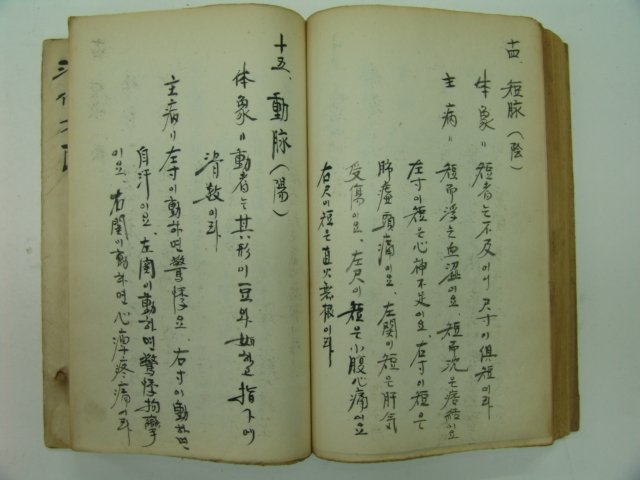 十四、短脉(陰)
体象〃 短者는 不及이어 尺寸이 俱短이라
主病〃 短而浮는 血澁이요 短而沈은 痞
左寸이 短은 心神不足이요 右寸이 短은
肺虛頭痛이요 左関이 短은 肝気
受傷이요 左尺이 短은 小腹心痛이요
右尺이 短은 真火 이라
十五、動脉(陽)
体象〃 動者는 其形이 豆와 如하고 指下에
滑数이라
主病〃 左寸이 動하면 驚悸요 右寸이 動하면
自汗이요 左関이 動하면 驚悸拘攣
이요 右関이 動하면 心痺疼痛이라